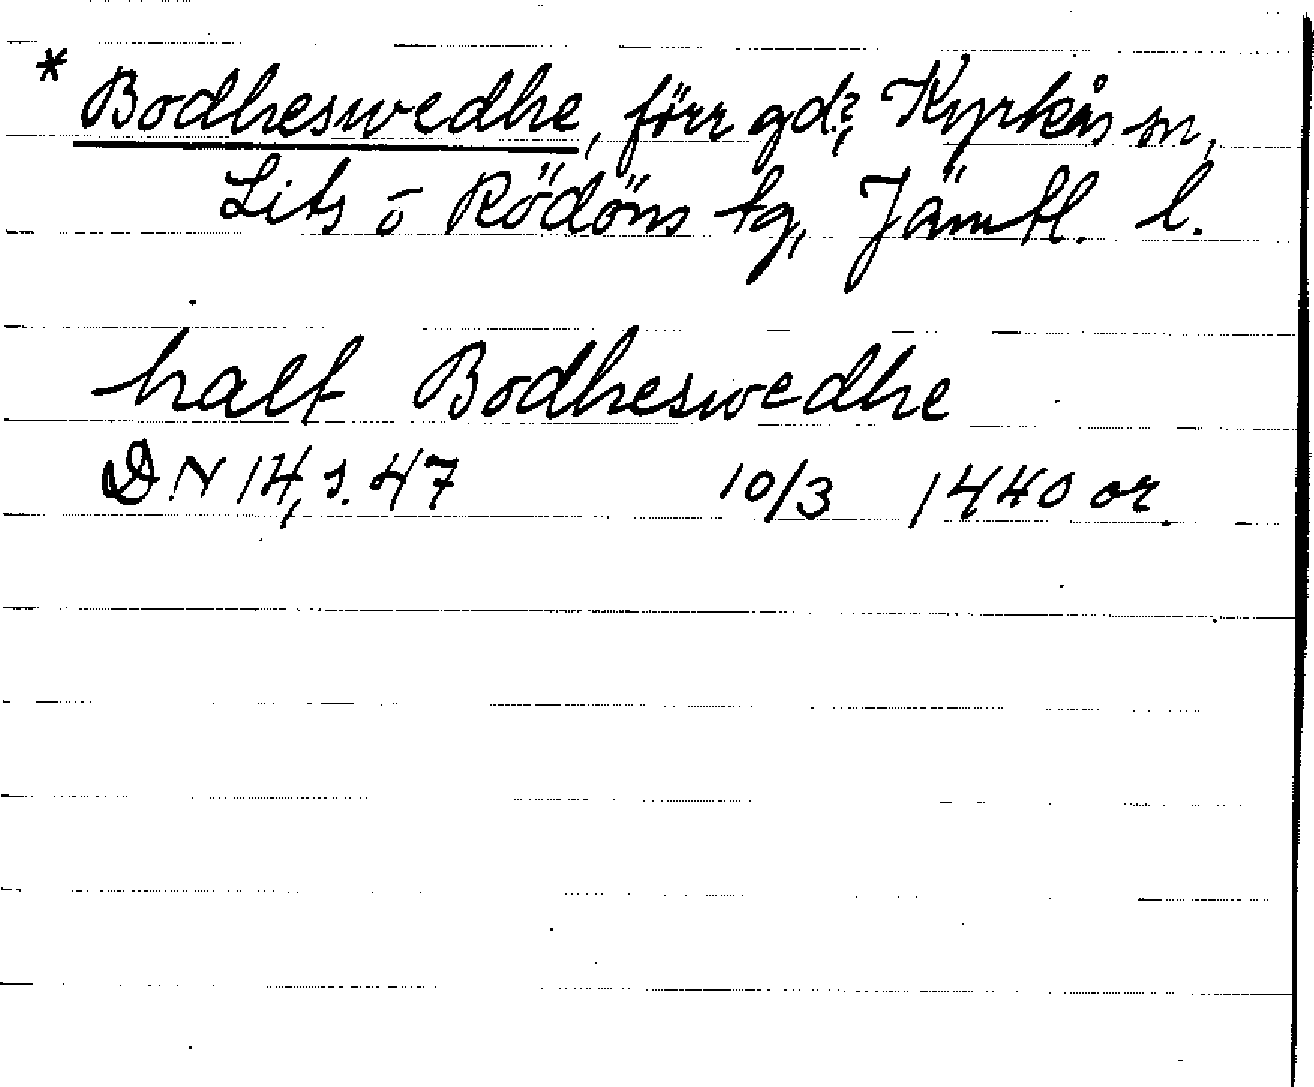 * Bodheswedhe, förr gd?, Kyrkås sn,
Lits o Rödöns tg, Jämtl. l.
half Bodheswedhe
DN 14, s. 47 10/3 1440 or